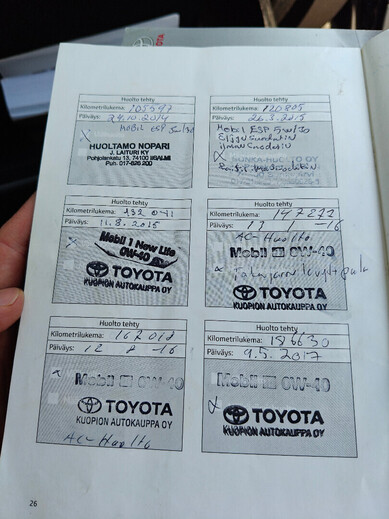 Huolto tehty
Kilometrilukema: 105547
Päiväys: 24.10.2014
MOBIL ESP 5W/30
HUOLTAMO NOPARI
J. LAITURI KY
Pohjolankatu 13, 74100 IISALMI
Puh. 017-826 200
Huolto tehty
Kilometrilukema: 120805
Päiväys: 26.3.2015
Mobil ESP 5W/30
Öljyn Suodatin
ilman Suodatin
OY
Huolto tehty
Kilometrilukema: 132 041
Päiväys: 11.8.2015
Mobil 1 New Life
0W-40
TOYOTA
KUOPION AUTOKAUPPA OY
Huolto tehty
Kilometrilukema: 147222
Päiväys: -16
AC-Huolto
Mobil 1 0W-40
TOYOTA
KUOPION AUTOKAUPPA OY
Huolto tehty
Kilometrilukema: 162012
Päiväys: 12 8 -16
Mobil 1 0W-40
TOYOTA
KUOPION AUTOKAUPPA OY
AC-Huolto
Huolto tehty
Kilometrilukema: 186630
Päiväys: 9.5.2017
Mobil 1 0W-40
TOYOTA
KUOPION AUTOKAUPPA OY
26